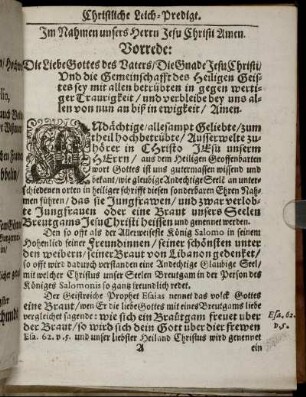 Christliche Leich-Predigt.
Im Nahmen unsers Herrn Jesu Christi Amen.
Vorrede:
Die Liebe Gottes des Vaters / Die Gnade Jesu Christi /
Und die Gemeinschafft des Heiligen Geis-
tes sey mit allen betrübten in gegen werti-
ger Traurigkeit / und verbleibe bey uns al-
len von nun an biß in ewigkeit / Amen.
Andächtige / allesampt Geliebte / zum
theil hochbetrübte / Ausserwelte zu-
hörere in CHristo JEsu unserm
HErrn / aus dem Heiligen Geoffenbarten
wort Gottes ist uns gutermassen wissend und
bekant / wie gläubige Andechtige Seele an unter-
schiedenen orten in heiliger schrifft diesen sonderbaren Ehren Nah-
men führen / das sie Jungfrawen / und zwar verlob-
te Jungfrauen oder eine Braut unsers Seelen
Breutgams Jesu Christi heissen und genennet werden.
Den so offt als der Allerweiseste König Salomo in seinem
Hohenlied seiner Freundinnen / seiner schönsten unter
den weibern / seiner Braut von Libanon gedencket /
so offt wird dadurch verstanden eine Andechtige Glaubige Seel /
mit welcher Christus unser Seelen Breutgam in der Person des
Königes Salomonis so gantz freundlich redet.
Der Geistreiche Prophet Esaias nennet das volck Gottes
eine Braut / wen Er die liebe Gottes mit eines Breutgams liebe
vergleichet sagende: wie sich ein Bräutgam freuet uber
der Braut / so wird sich dein Gott über dier frewen
Esa. 62. v. 5. und unser liebster Heiland Christus wird genennet
Esa. 62.
v. 5.
A
ein